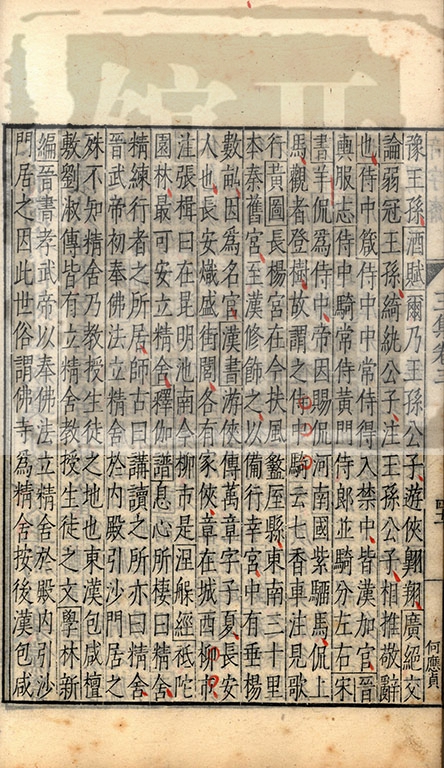 豫王孫酒賦爾乃王孫公子遊俠翺翔廣絕交
論弱冠王孫綺紈公子注王孫公子相推敬辭
也侍中箴侍中中常侍得入禁中皆漢加官晉
輿服志侍中騎常侍黃門侍郎竝騎分左右宋
書羊侃爲侍中帝因賜侃河南國紫騮馬侃上
馬觀者登樹故謂之侍中騎云七香車注見歌
行黃圖長楊宮在今扶風盩厔縣東南三十里
本秦舊宮至漢修飾之以備行幸宮中有垂楊
數畝因爲名宮漢書游俠傳萬章字子夏長安
人也長安熾盛街閭各有家俠章在城西柳市
注張揖曰在昆明池南今柳市是涅槃經祇陀
園林最可安立精舍釋伽譜息心所棲曰精舍
精練行者之所居師古曰講讀之所亦曰精舍
晉武帝初奉佛法立精舍於內殿引沙門居之
殊不知精舍乃教授生徒之地也東漢包咸檀
敷劉淑傳皆有立精舍教授生徒之文學林新
編晉書孝武帝以奉佛法立精舍於殿內引沙
門居之因此世俗謂佛寺爲精舍按後漢包咸
何應貞